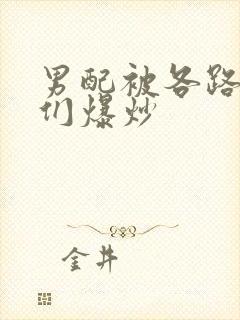 男配被各路
们爆炒
金井